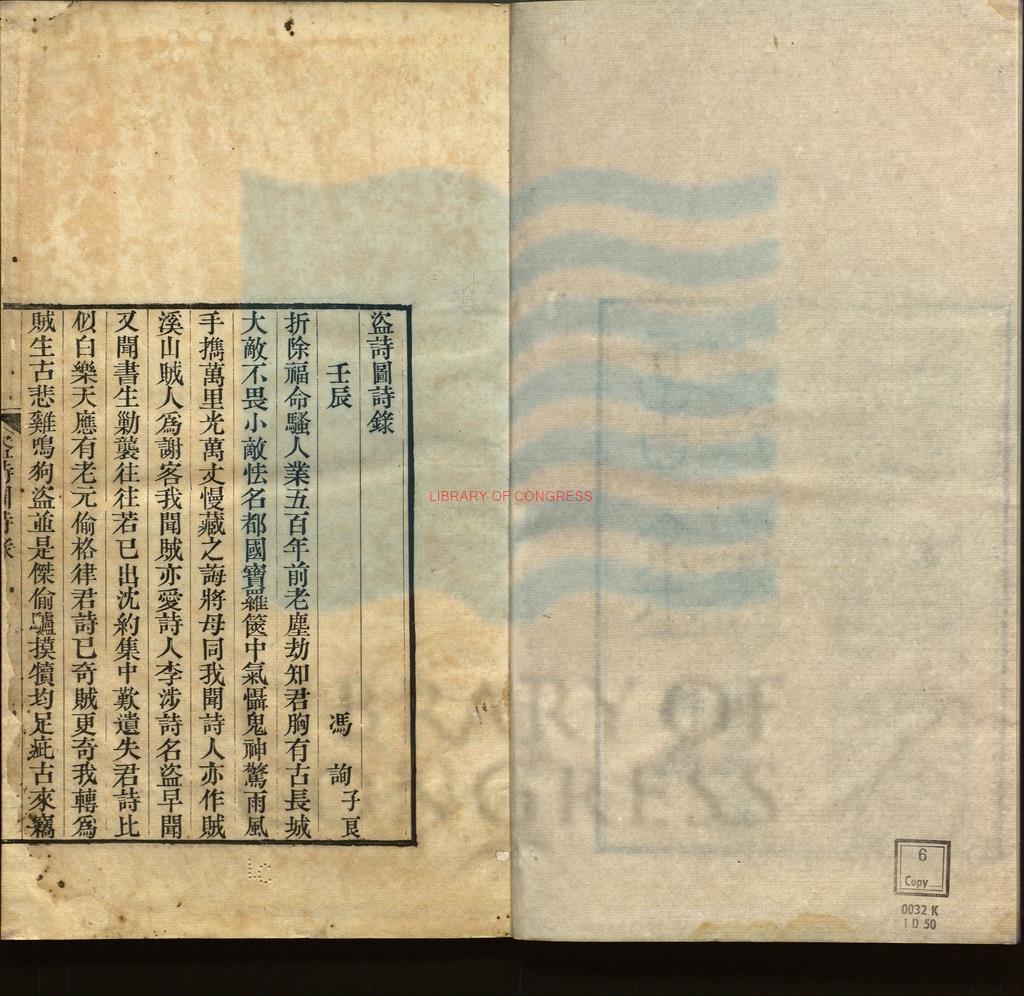 盜詩圖詩錄
壬辰　馮詢子良
折除福命騷人業五百年前老塵劫知君胸有古長城
大敵不畏小敵怯名都國寶羅篋中氣懾鬼神驚雨風
手擕萬里光萬丈慢藏之誨將毋同我聞詩人亦作賊
溪山賊人爲謝客我聞賊亦愛詩人李涉詩名盜早聞
又聞書生勦襲往往若巳出沈約集中歎遺失君詩比
似白樂天應有老元偷格律君詩巳奇賊更奇我轉爲
賊生古悲雞鳴狗盜並是傑偷驢摸犢均足疵古來竊
盜詩圖詩錄
LIBRARY OF CONGRESS
6
Copy
0032 K
1 D 50
LC